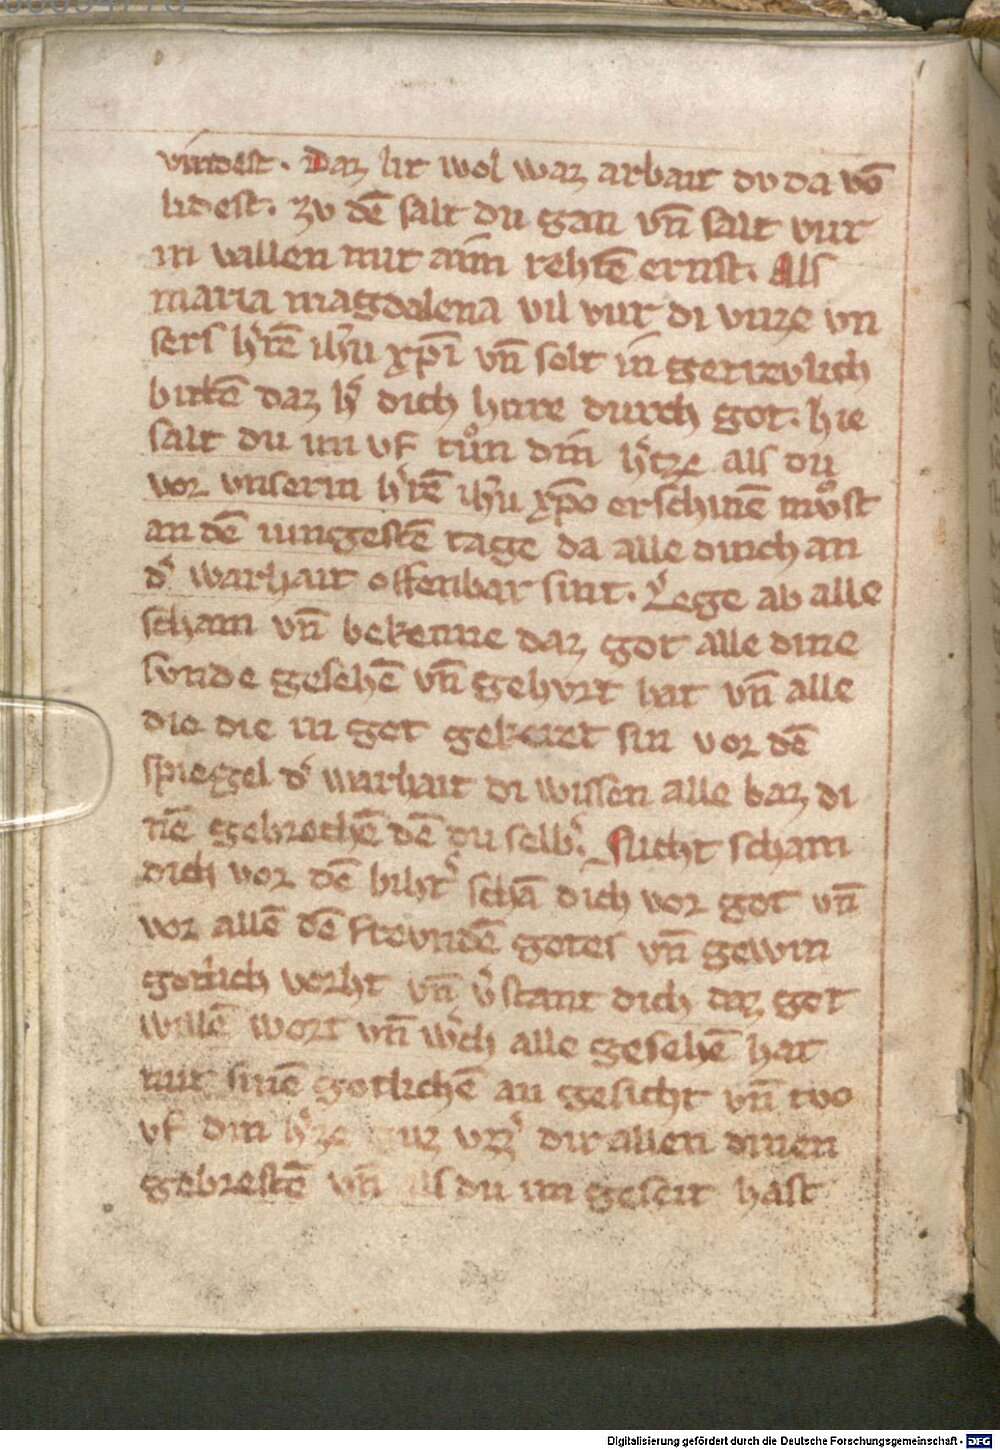 vindest. Daz lit wol waz arbait du da vō
lidest. zv dē salt du gan vn̄ salt vur
in vallen mit aim rehtē ernst. Als
maria magdalena vil vur di vuze vn
sers hr̄ē ihū xp̄i vn̄ solt in getrevlich
bittē daz h' dich hōre durch got. hie
salt du im vf tůn din h'tze als du
vor vnserm h'rē ihū xp̄o erschinē mv̊st
an dē iungestē tage da alle dinch an
d' warhait offenbar sint. Lege ab alle
scham vn̄ bekenne daz got alle dine
svnde gesehē vn̄ gehvrt hat vn̄ alle
die die in got gekeret sin vor dē
spiegel d' warhait di wissen alle baz di
nē gebrechē dē du selb'. Sucht scham
dich vor dē biht' schā dich vor got vn̄
vor allē dē frevndē gotes vn̄ gewin
gotlich vorht vn̄ v'stant dich daz got
willē wort vn̄ w'ch alle gesehē hat
mit sinē gotlichē an gesicht vn̄ tvo
vf din h'ze vz dir allen dinen
gebrestē vn̄ als du im geseit hast
Digitalisierung gefördert durch die Deutsche Forschungsgemeinschaft - DFG